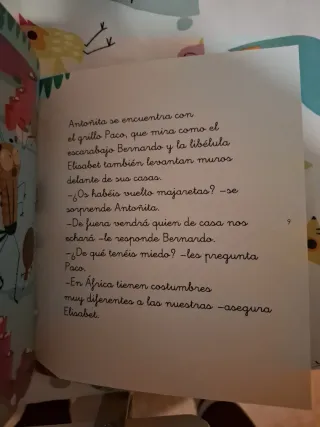 Antoñita se encuentra con
el grillo Paco, que mira como el
escarabajo Bernardo y la libélula
Elisabet también levantan muros
delante de sus casas.
-¿Os habéis vuelto majaretas? -se
sorprende Antoñita.
-De fuera vendrá quien de casa nos
echará -le responde Bernardo.
-¿De qué tenéis miedo? -les pregunta
Paco.
-En África tienen costumbres
muy diferentes a las nuestras -asegura
Elisabet.